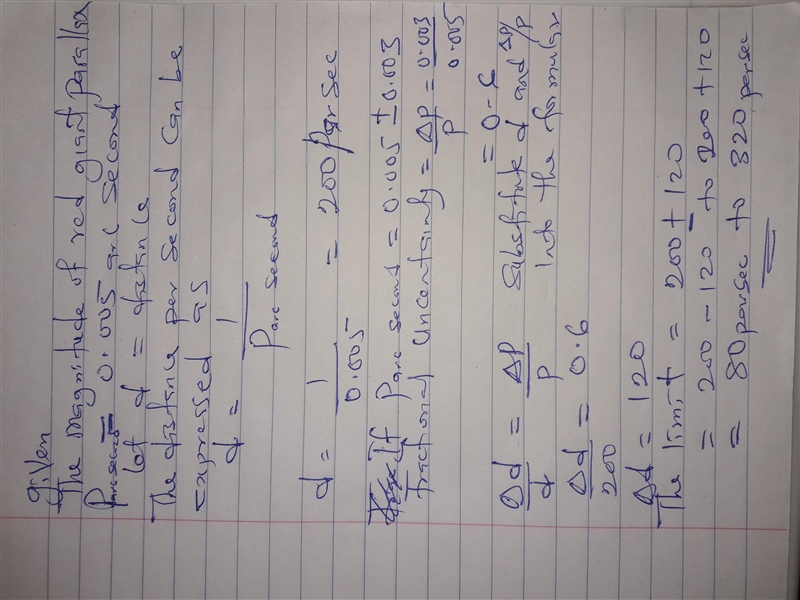 given
The magnitude of red giant parallax
Parcsecond = 0.005 arc second
let d = distance
The distance per second can be
expressed as
d = 1
Parc second
d = 1 = 200 parsec
0.005
If Parc second = 0.005 ± 0.003
fractional Uncertainty = ΔP = 0.003
P 0.005
= 0.6
Δd = ΔP Substitute d and ΔP/P
d P into the formular
Δd = 0.6
200
Δd = 120
The limit = 200 ± 120
= 200 - 120 to 200 + 120
= 80 parsec to 320 parsec